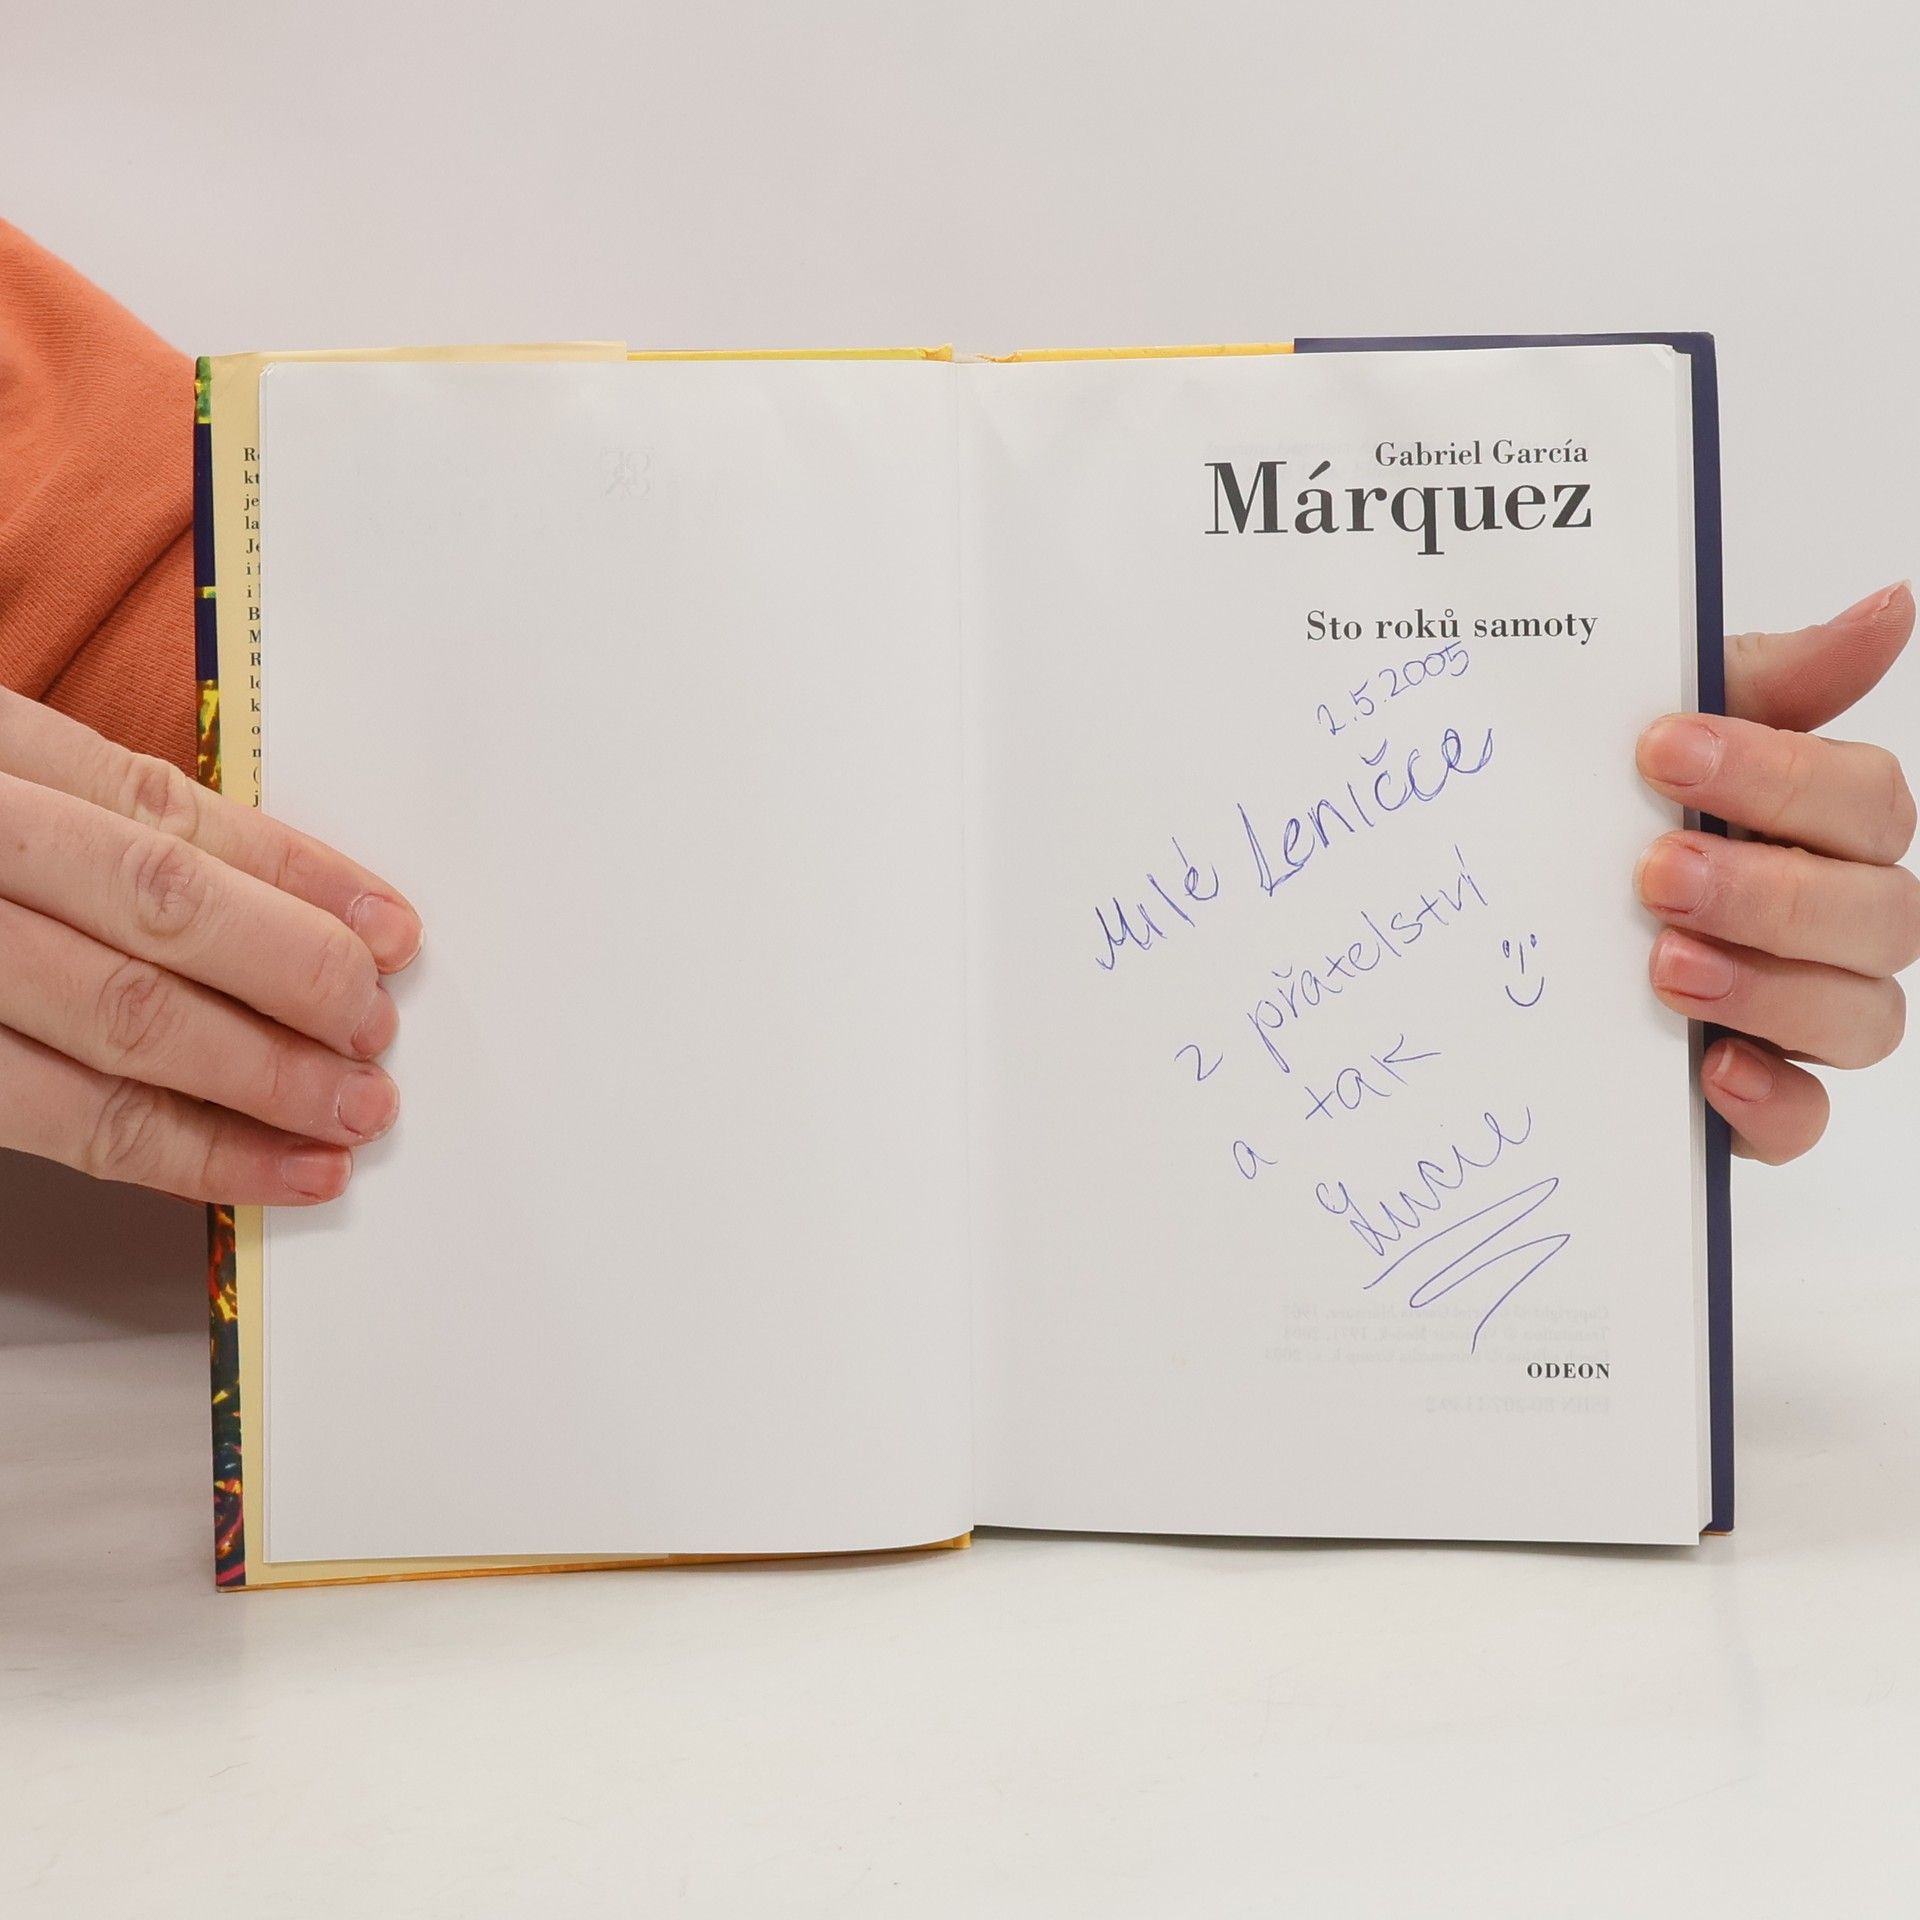 Gabriel García
Márquez
Sto roků samoty
2.5.2005
Milé Leničce
z přátelství
:-)
a tak
Lucie
ODEON
je
la
i
i
B
M
R
k
o
(
j